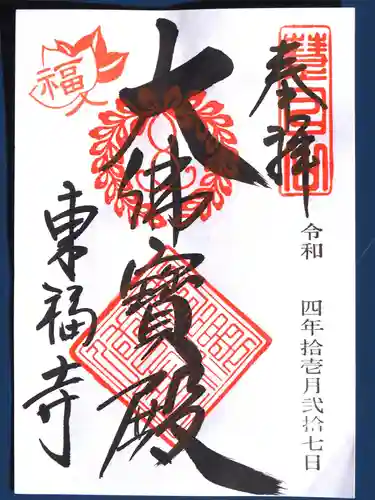 奉拝
令和 四年拾壱月弐拾七日
大佛寳殿
福
東福寺